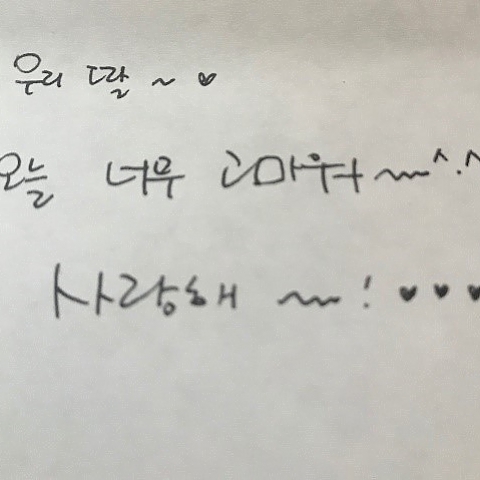 우리 딸 ~ ♥
오늘 너무 고마워 ~~ ^.^
사랑해 ~~ ! ♥ ♥ ♥